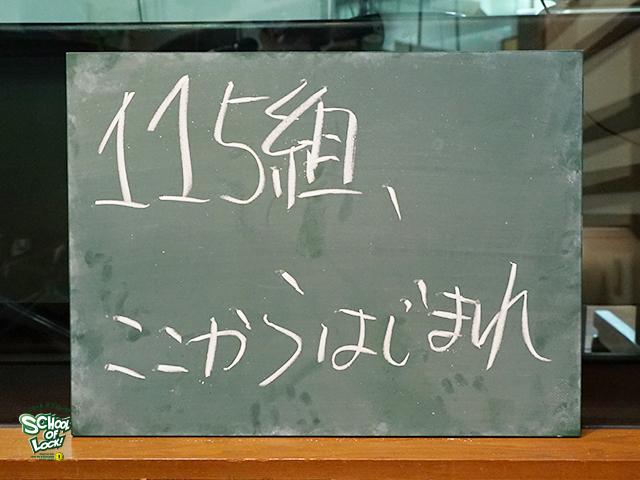 115組、
ここからはじまれ
SCHOOL
OF
LOCK!